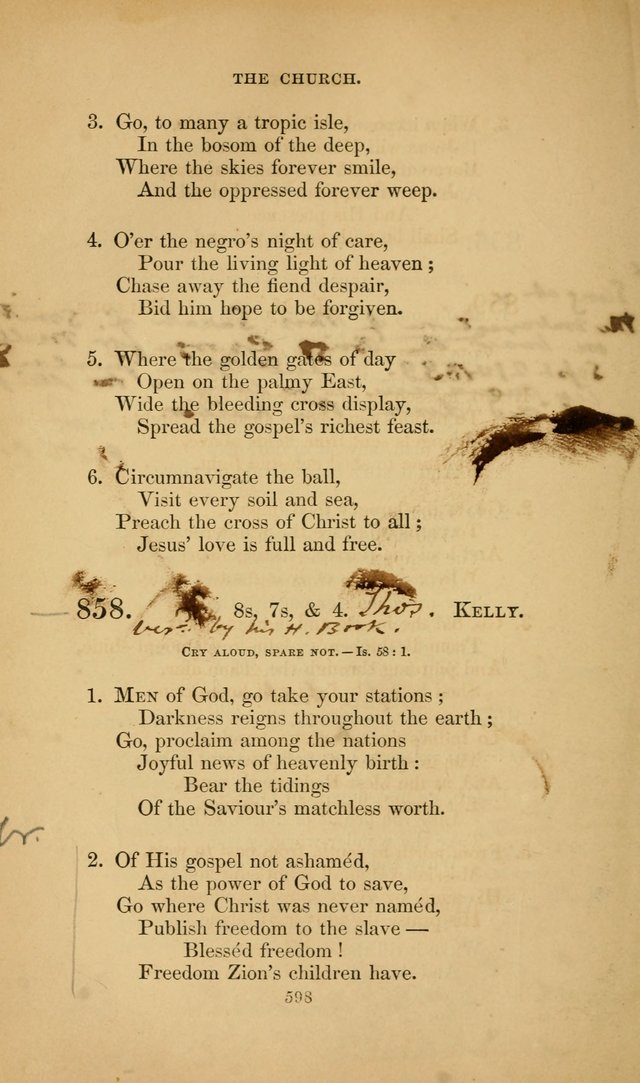 THE CHURCH.
3. Go, to many a tropic isle,
In the bosom of the deep,
Where the skies forever smile,
And the oppressed forever weep.
4. O'er the negro's night of care,
Pour the living light of heaven;
Chase away the fiend despair,
Bid him hope to be forgiven.
5. Where the golden gates of day
Open on the palmy East,
Wide the bleeding cross display,
Spread the gospel's richest feast.
6. Circumnavigate the ball,
Visit every soil and sea,
Preach the cross of Christ to all;
Jesus' love is full and free.
858. 8s, 7s, & 4. Thos. KELLY.
by his H. Book.
CRY ALOUD, SPARE NOT.—Is. 58:1.
1. MEN of God, go take your stations;
Darkness reigns throughout the earth;
Go, proclaim among the nations
Joyful news of heavenly birth:
Bear the tidings
Of the Saviour's matchless worth.
2. Of His gospel not ashaméd,
As the power of God to save,
Go where Christ was never naméd,
Publish freedom to the slave—
Blesséd freedom!
Freedom Zion's children have.
598